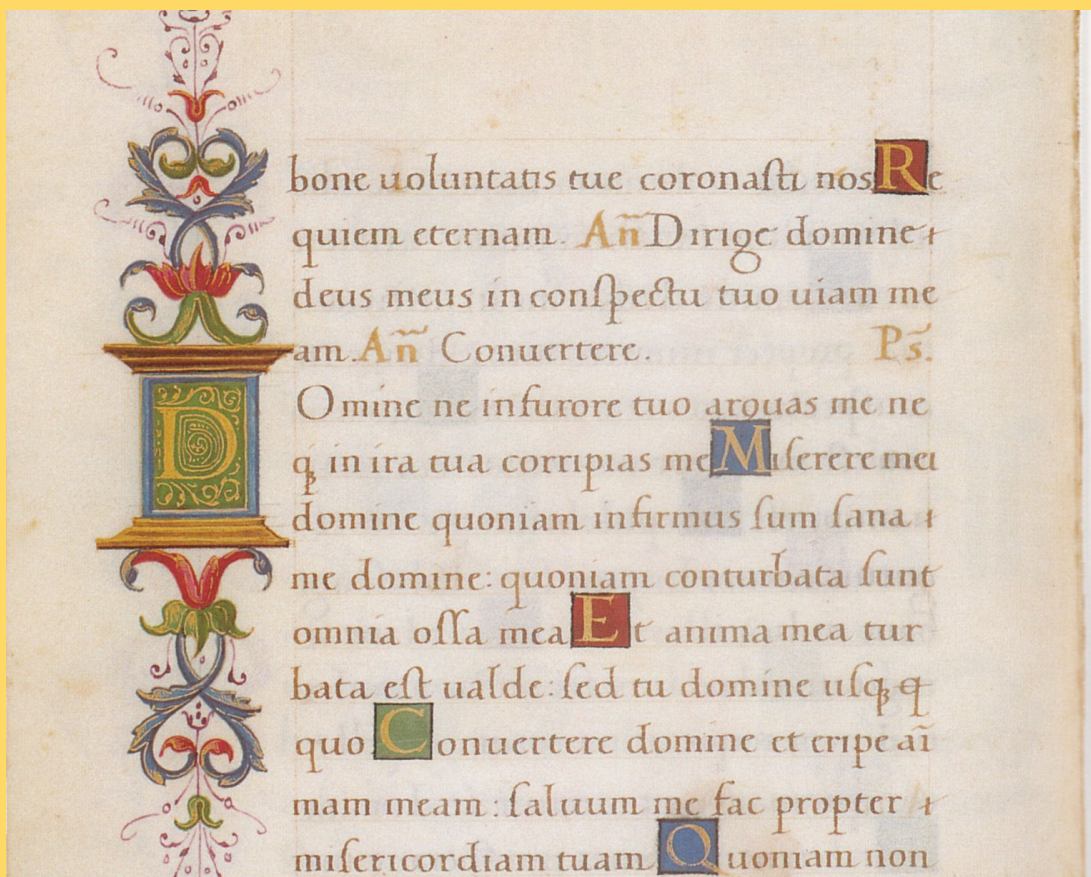 bone uoluntatis tue coronaſti nos Re
quiem eternam. Añ Dirige domine
deus meus in conſpectu tuo uiam me
am. Añ Conuertere. Ps̃.
Domine ne in furore tuo arguas me ne
qȝ in ira tua corripias me Miſerere mei
domine quoniam infirmus ſum ſana
me domine: quoniam conturbata ſunt
omnia oſſa mea Et anima mea tur
bata eſt ualde: ſed tu domine uſqȝ q
quo Conuertere domine et eripe aĩ
mam meam: ſaluum me fac propter
miſericordiam tuam Quoniam non